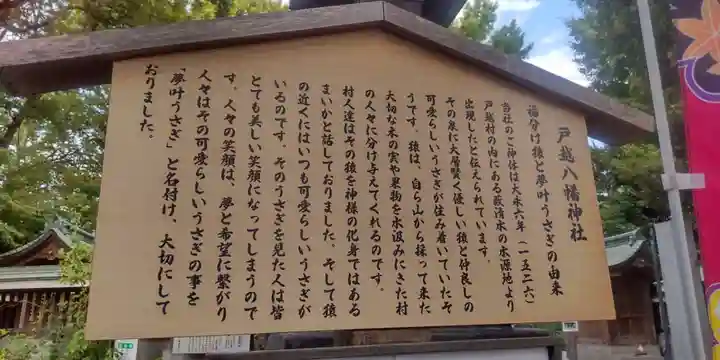 戸越八幡神社
福分け猿と夢叶うさぎの由来
当社のご神体は大永六年(一五二六)
戸越村の内にある藪清水の水源地より
出現したと伝えられています。
その泉に大層賢く優しい猿と仲良しの
可愛らしいうさぎが住み着いていたそ
うです。猿は、自ら山から採って来た
大切な木の実や果物を水汲みにきた村
の人々に分け与えてくれるのです。
村人達はその猿を神様の化身ではある
まいかと話しておりました。そして猿
の近くにはいつも可愛らしいうさぎが
いるのです。そのうさぎを見た人は皆
とても美しい笑顔になってしまうので
す。人々の笑顔は、夢と希望に繋がり
人々はその可愛らしいうさぎの事を
「夢叶うさぎ」と名付け、大切にして
おりました。